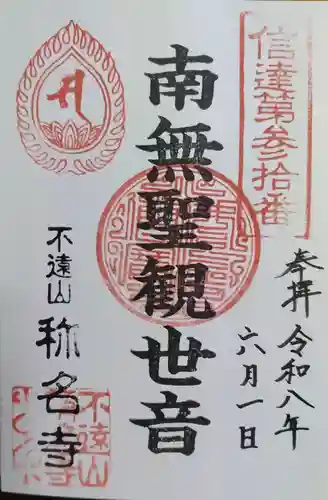 信達第参拾番
奉拝 令和八年
六月一日
南無聖観世音
不遠山
称名寺
不遠山